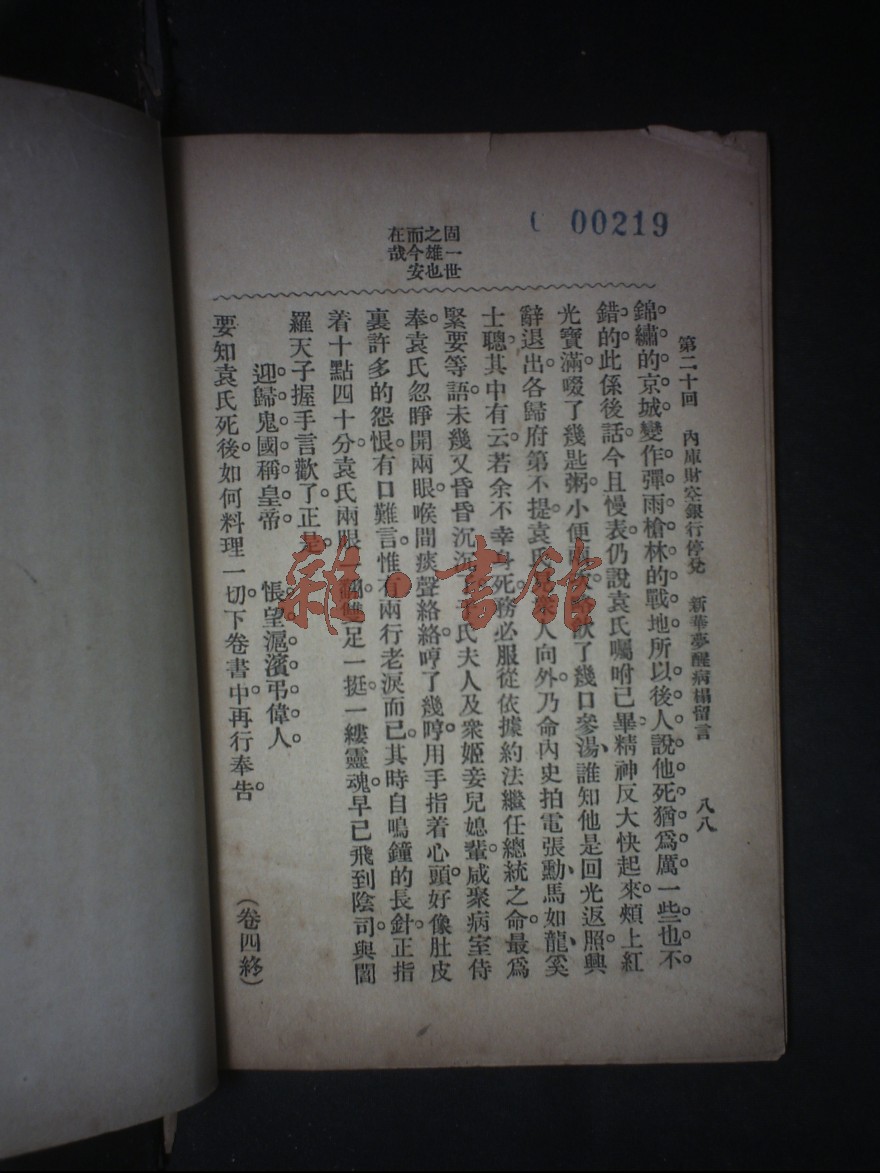 00219
固一世
之雄也
而今安
在哉
第二十回 內庫財空銀行停兌 新華夢醒病榻留言 八八
錦繡的京城變作彈雨槍林的戰地所以後人說他死猶爲厲一些也不
錯的此係後話今且慢表仍說袁氏囑咐已畢精神反大快起來頰上紅
光寶滿啜了幾匙粥小便 飲了幾口參湯誰知他是回光返照興
辭退出各歸府第不提袁氏見衆人向外乃命內史拍電張勳馬如龍奚
士聰其中有云若余不幸身死務必服從依據約法繼任總統之命最爲
緊要等語未幾又昏昏沉沉 氏夫人及衆姬妾兒媳輩咸聚病室侍
奉袁氏忽睜開兩眼喉間痰聲絡絡哼了幾哼用手指着心頭好像肚皮
裏許多的怨恨有口難言惟有兩行老淚而已其時自鳴鐘的長針正指
着十點四十分袁氏兩眼一翻雙足一挺一縷靈魂早已飛到陰司與閻
羅天子握手言歡了正是
迎歸鬼國稱皇帝 悵望滬濱弔偉人
要知袁氏死後如何料理一切下卷書中再行奉告
（卷四終）
雜·書館